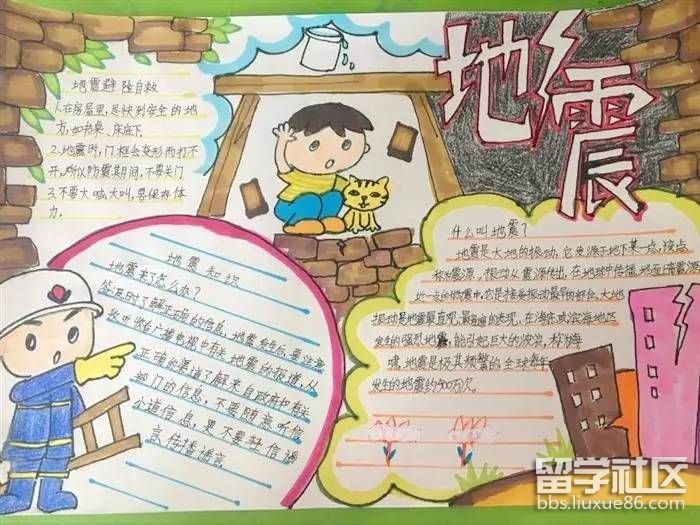 地震
地震避险自救
1.在房屋里,尽快到安全的地
方,如书桌、床底下
2.地震时,门框会变形而打不
开,所以防震期间,不要关门
3.不要大喊大叫,要保存体
力.
什么叫地震?
地震是大地的振动,它发源于地下某一点,该点
称为震源,振动从震源传出,在地球中传播,地面上离震源
最近一点的震中,它是接受振动最早的部位,大地
振动是地震最直观,最普遍的表现,在海底或滨海地区
发生的强烈地震,能引起巨大的波浪,称海
啸,地震是极其频繁的,全球每年
发生的地震约500万次.
地震知识
地震来了怎么办?
答:及时了解正确的信息,地震发生后,要注意
收听收看广播电视中有关地震的报道,从
正确的渠道了解来自政府和有关
部门的信息,不要随意听信
小道信息,更不要轻信谣
言,传播谣言
留学社区
bbs.liuxue86.com